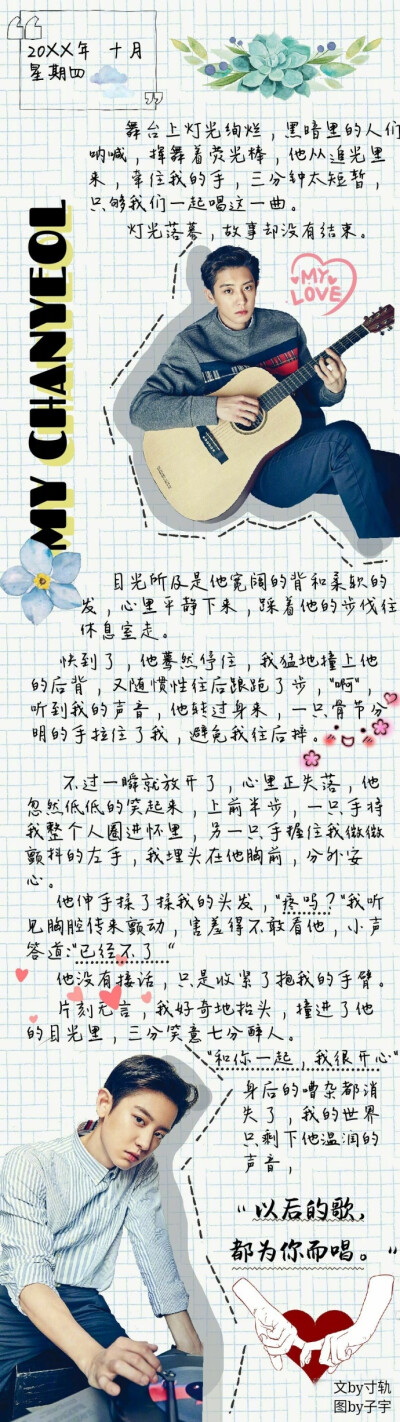 20XX年 十月
星期四
舞台上灯光绚烂，黑暗里的人们
呐喊，挥舞着荧光棒，他从追光里
来，牵住我的手，三分钟太短暂，
只够我们一起唱这一曲。
灯光落幕，故事却没有结束。
MY CHANYEOL
MY
LOVE
目光所及是他宽阔的背和柔软的
发，心里平静下来，踩着他的步伐往
休息室走。
快到了，他蓦然停住，我猛地撞上他
的后背，又随惯性往后踉跄了步，"啊"，
听到我的声音，他转过身来，一只骨节分
明的手拉住了我，避免我往后摔。
不过一瞬就放开了，心里正失落，他
忽然低低的笑起来，上前半步，一只手将
我整个人圈进怀里，另一只手握住我微微
颤抖的左手，我埋头在他胸前，分外安
心。
他伸手揉了揉我的头发，"疼吗？"我听
见胸腔传来颤动，害羞得不敢看他，小声
答道:"已经不了"
他没有接话，只是收紧了抱我的手臂。
片刻无言，我好奇地抬头，撞进了他
的目光里，三分笑意七分醉人。
"和你一起，我很开心"
身后的嘈杂都消
失了，我的世界
只剩下他温润的
声音，
"以后的歌，
都为你而唱。"
文by寸轨
图by子宇